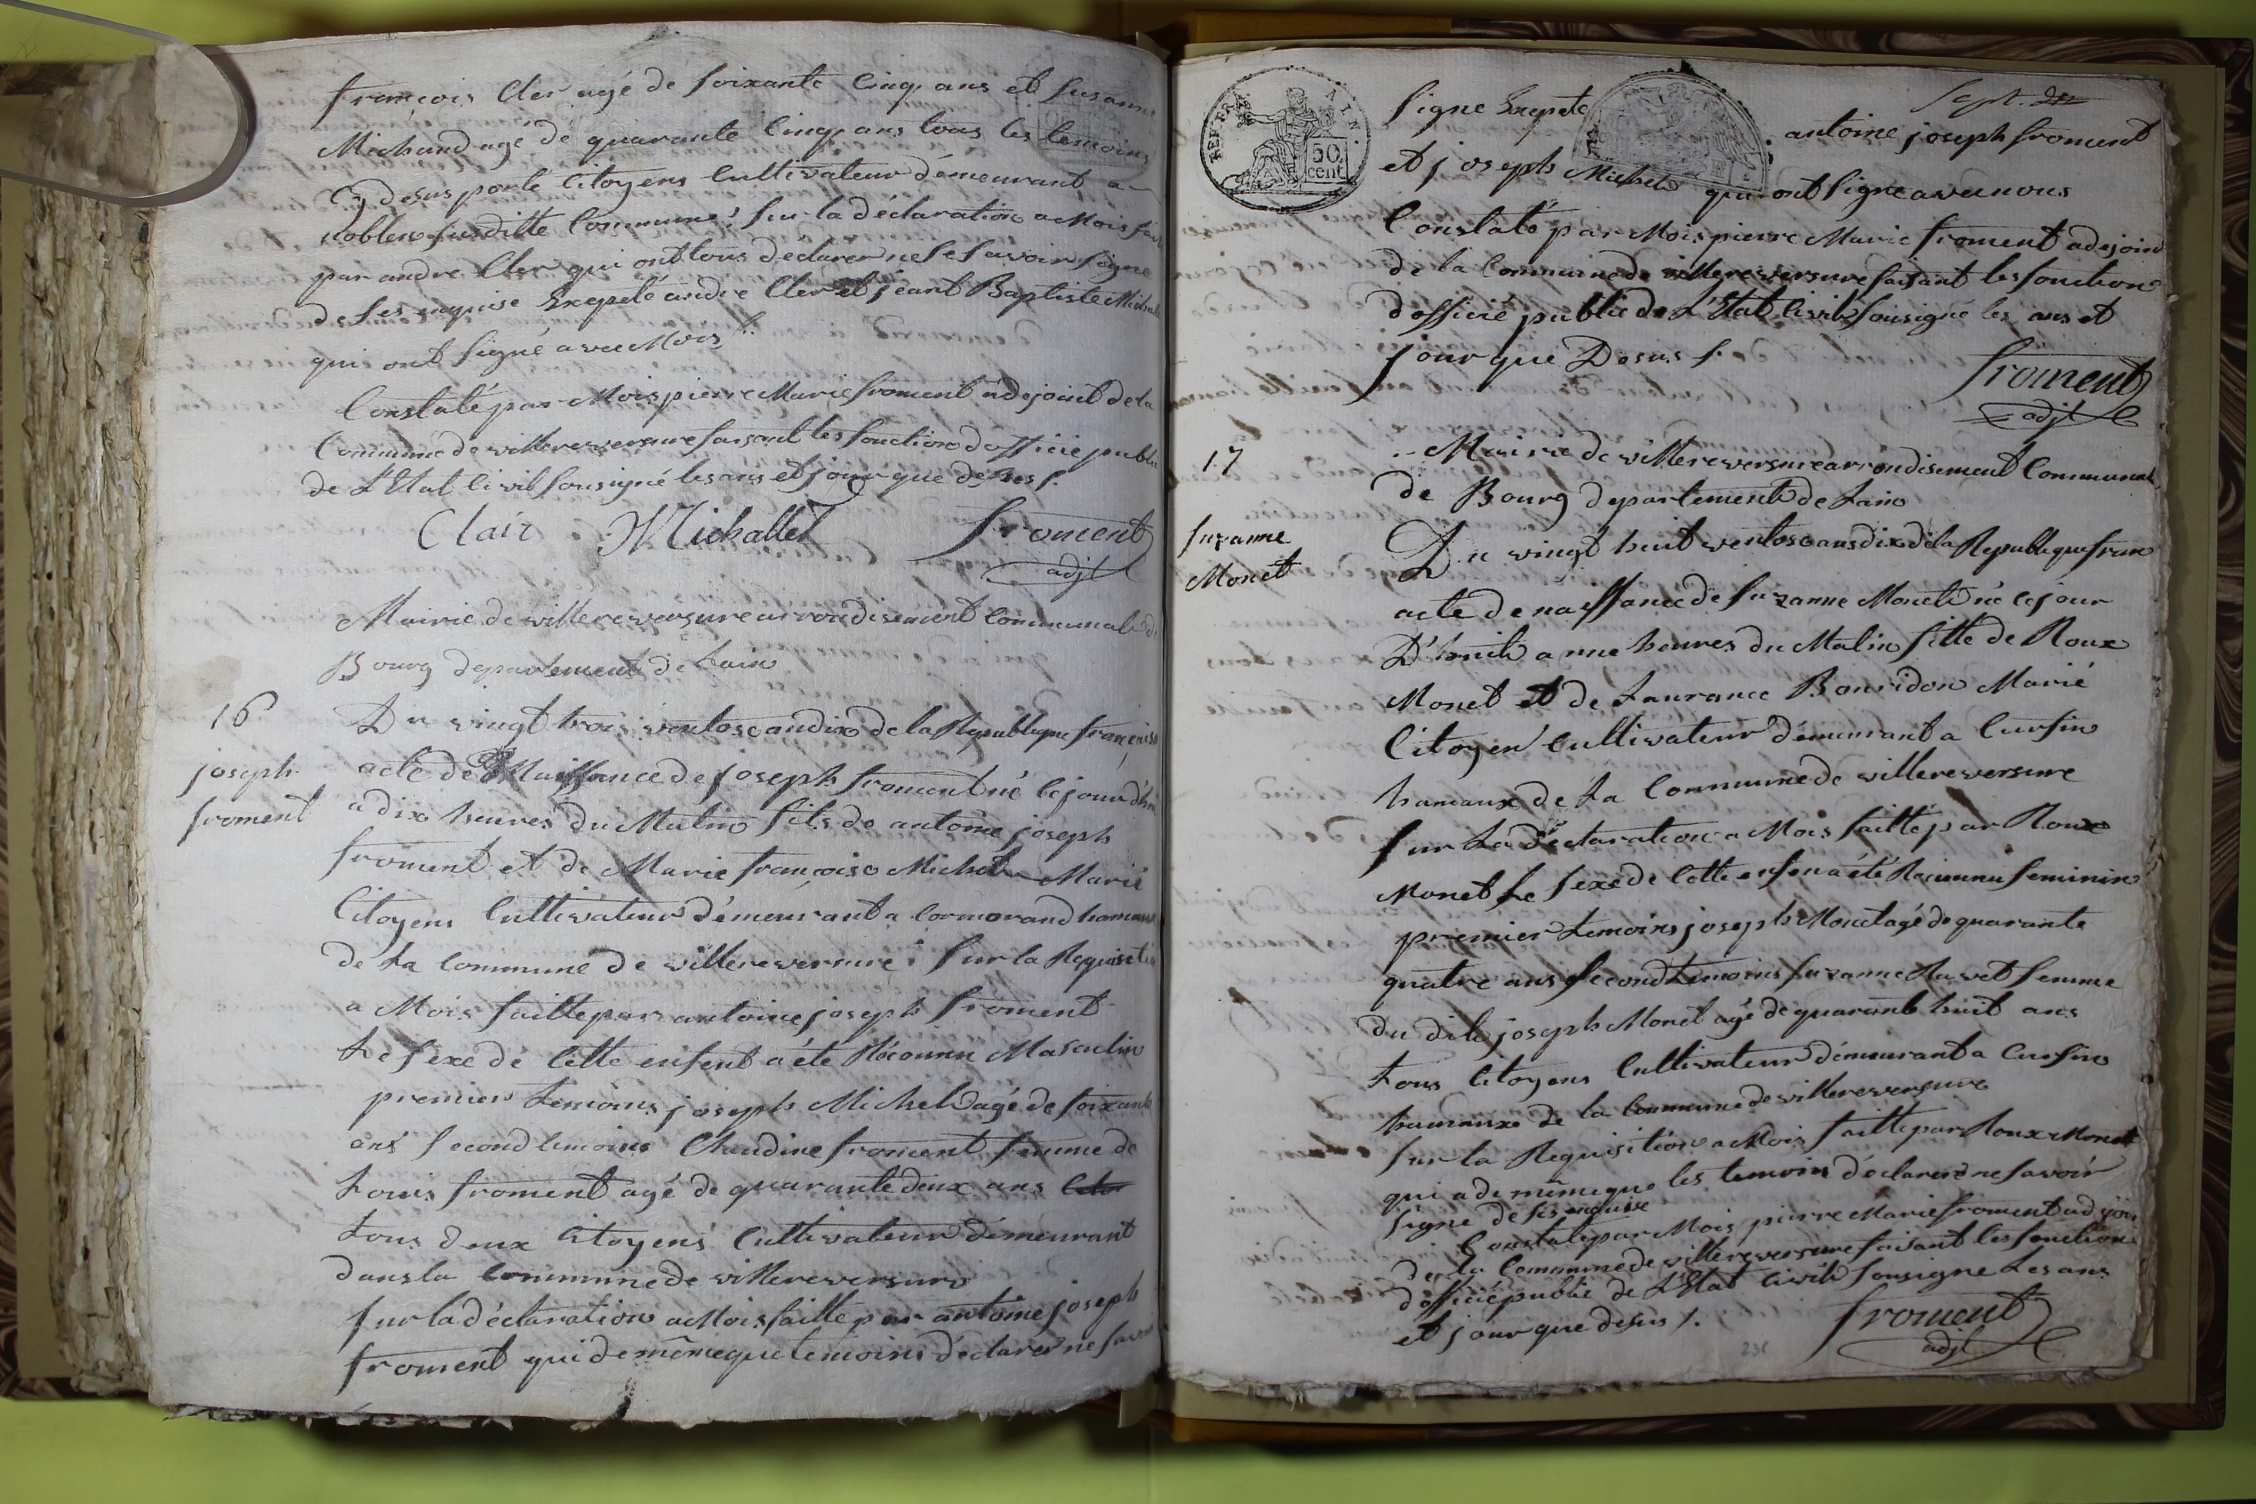 françois Cler agé de soixante Cinq ans et Susanne
Michaud agé de quarante Cinq ans tous les temoins
Cy desus porté Citoyens Cultivateur démeurant a
noblens susditte Commune ; sur la déclaration a Mois faite
par andre Cler qui ont tous déclarer ne Savoir Signe
de Ses enquise Exepeté andre Cler et jeant Baptiste Michalet
qui ont Signé avec Mois
Constaté par Mois pierre Marie froment adejoint de la
Commune de villereversure faisant les fonction dofficié public
de L'Etat Civil Sousigné les ans et jour que desus /.
Clair Michallet froment
adjt
Mairie de villereversure arrondisement Communal de
Bourg departement de Lain
16
joseph
froment
Du vingt trois ventose an dix de la Republique françoise
acte de Naissance de joseph froment né Cejourd'hui
a dix heures du Matin fils de antoine joseph
froment et de Marie françoise Michel Marié
Citoyens Cultivateur démeurant a Cormorand hameaux
de La Commune de villereversure ; Sur la Requisition
a Mois faitte par antoine joseph froment
Le Sexe de Cette enfent a été Réconnu Masculin
premier Temoins joseph Michel agé de soixante
ans Second temoins Claudine froment femme de
Louis froment agé de quarante deux ans
tous deux Citoyens Cultivateur démeurant
dans la Commune de villereversure
Sur la déclaration a Mois faitte par antoine joseph
froment qui de même que temoins déclarer ne Savoir
REP. FRA. 50 cent
Sept.
Signe Exepeté antoine joseph froment
et joseph Michel qui ont Signe avec nous
Constaté par Mois pierre Marie froment adejoint
de la Commune de villereversure faisant les fonction
dofficié public de L'Etat Civil Sousigné les ans et
jour que Desus /.
froment
adjt
17
Suzanne
Monet
Mairie de villereversure arrondisement Communal
de Bourg departement de Lain
Du vingt huit ventose ans dix de la Republique fran
acte de naissance de Suzanne Monet né Cejour
D'huit a une heures du Matin fille de Roux
Monet et de Laurance Bouvidon Marié
Citoyen Cultivateur démeurant a Cursin
hamaux de La Commune de villereversure
Sur La déclaration a Mois faitté par Roux
Monet Le Sexe de Cette enfen a été Reconnu feminin
premier Temoins joseph Monet agé de quarante
quatre ans Second Temoins Suzanne Ravet femme
du dit joseph Monet agé de quarante huit ans
tous Citoyens Cultivateur démeurant a Cursin
hameaux de la Commune de villereversure
Sur la Requisition a Mois faitte par Roux Monet
qui a de même que les temoins déclarer ne Savoir
Signe de Ses enquise
Constaté par Mois pierre Marie froment adjoin
de La Commune de villereversure faisant les fonction
dofficié public de L'Etat Civil Sousigne Les ans
et jour que desus /.
froment
adjt